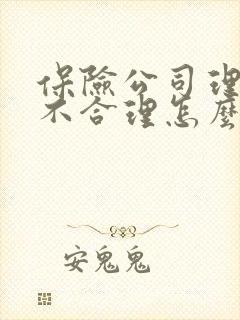 保險公司理
不合理怎麼
安鬼鬼